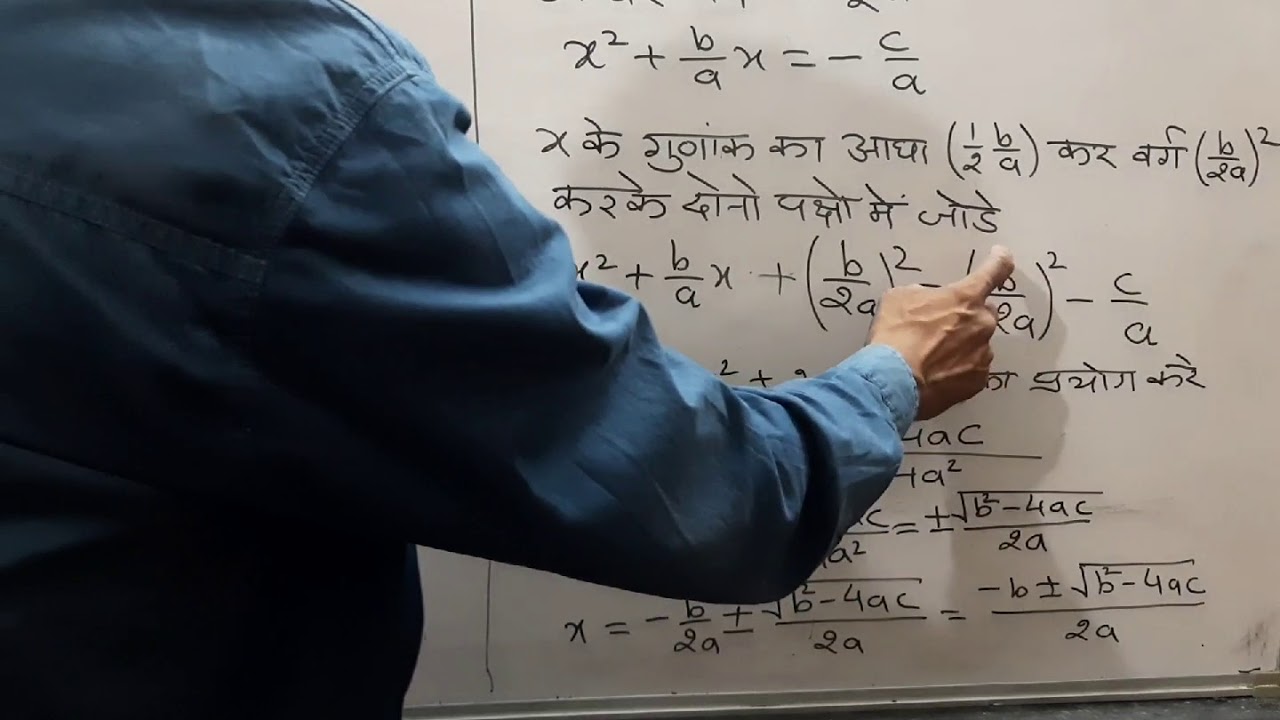 x² + b/a x = - c/a
x के गुणांक का आधा (1/2 b/a) कर वर्ग (b/2a)²
करके दोनो पक्षो में जोडे
x² + b/a x + (b/2a)² = (b/2a)² - c/a
² + का प्रयोग करे
4ac
4a²
= ± √b²-4ac / 2a
x = - b/2a ± √b²-4ac / 2a = -b ± √b²-4ac / 2a